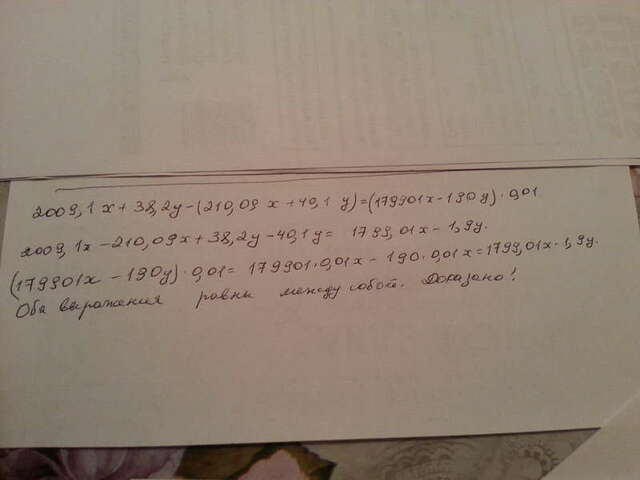 2009,1x+38,2y-(210,09x+40,1y)=(179901x-190y)·0,01
2009,1x-210,09x+38,2y-40,1y= 1799,01x-1,9y.
(179901x-190y)·0,01= 179901·0,01x-190·0,01x=1799,01x-1,9y.
Оба выражения равны между собой. Доказано!